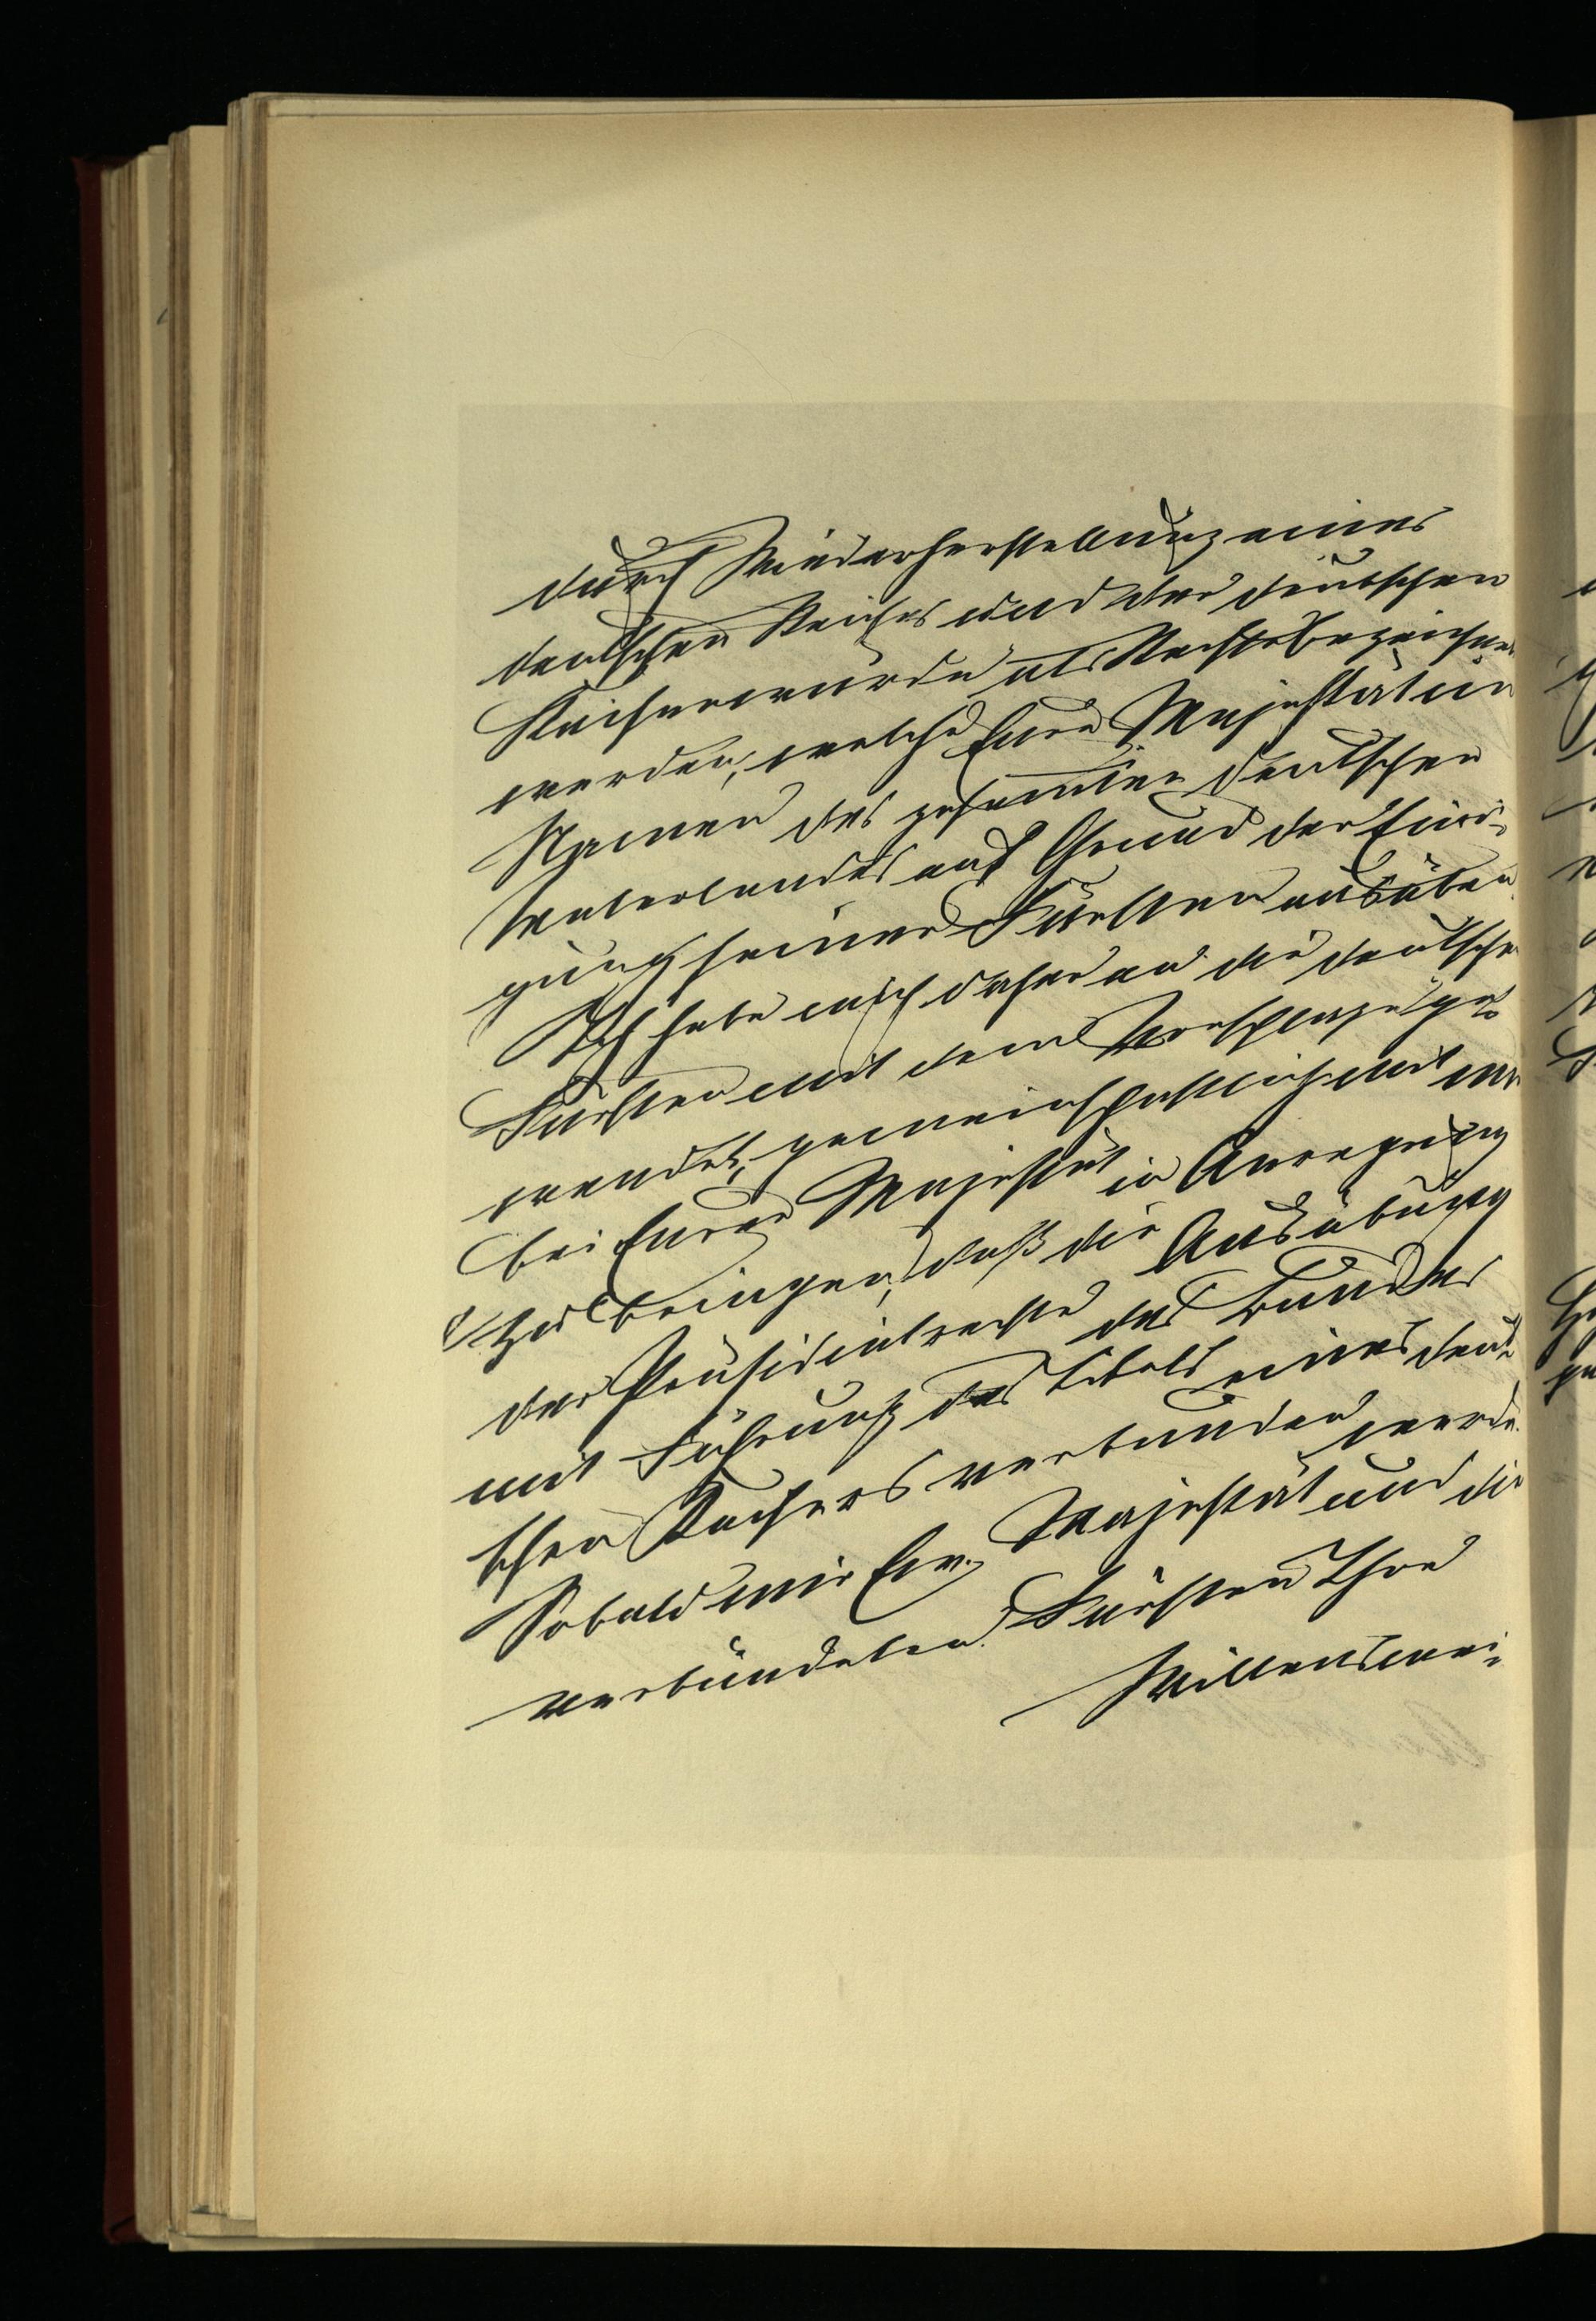 durch Wiederherstellung eines
deutschen Reiches und der deutschen
Kaiserwürde als Rechte bezeichnet
werden, welche Eure Majestät im
Namen des gesammten deutschen
Vaterlandes auf Grund der Eini-
gung seiner Fürsten ausüben.
Ich habe mich daher an die deutschen
Fürsten mit dem Vorschlage ge-
wendet, gemeinschaftlich mit mir
bei Eurer Majestät in Anregung
zu bringen, daß die Ausübung
der Präsidialrechte des Bundes
mit Führung des Titels eines deut-
schen Kaisers verbunden werde.
Sobald mir Ew. Majestät und die
verbündeten Fürsten Ihre
Willensmei-